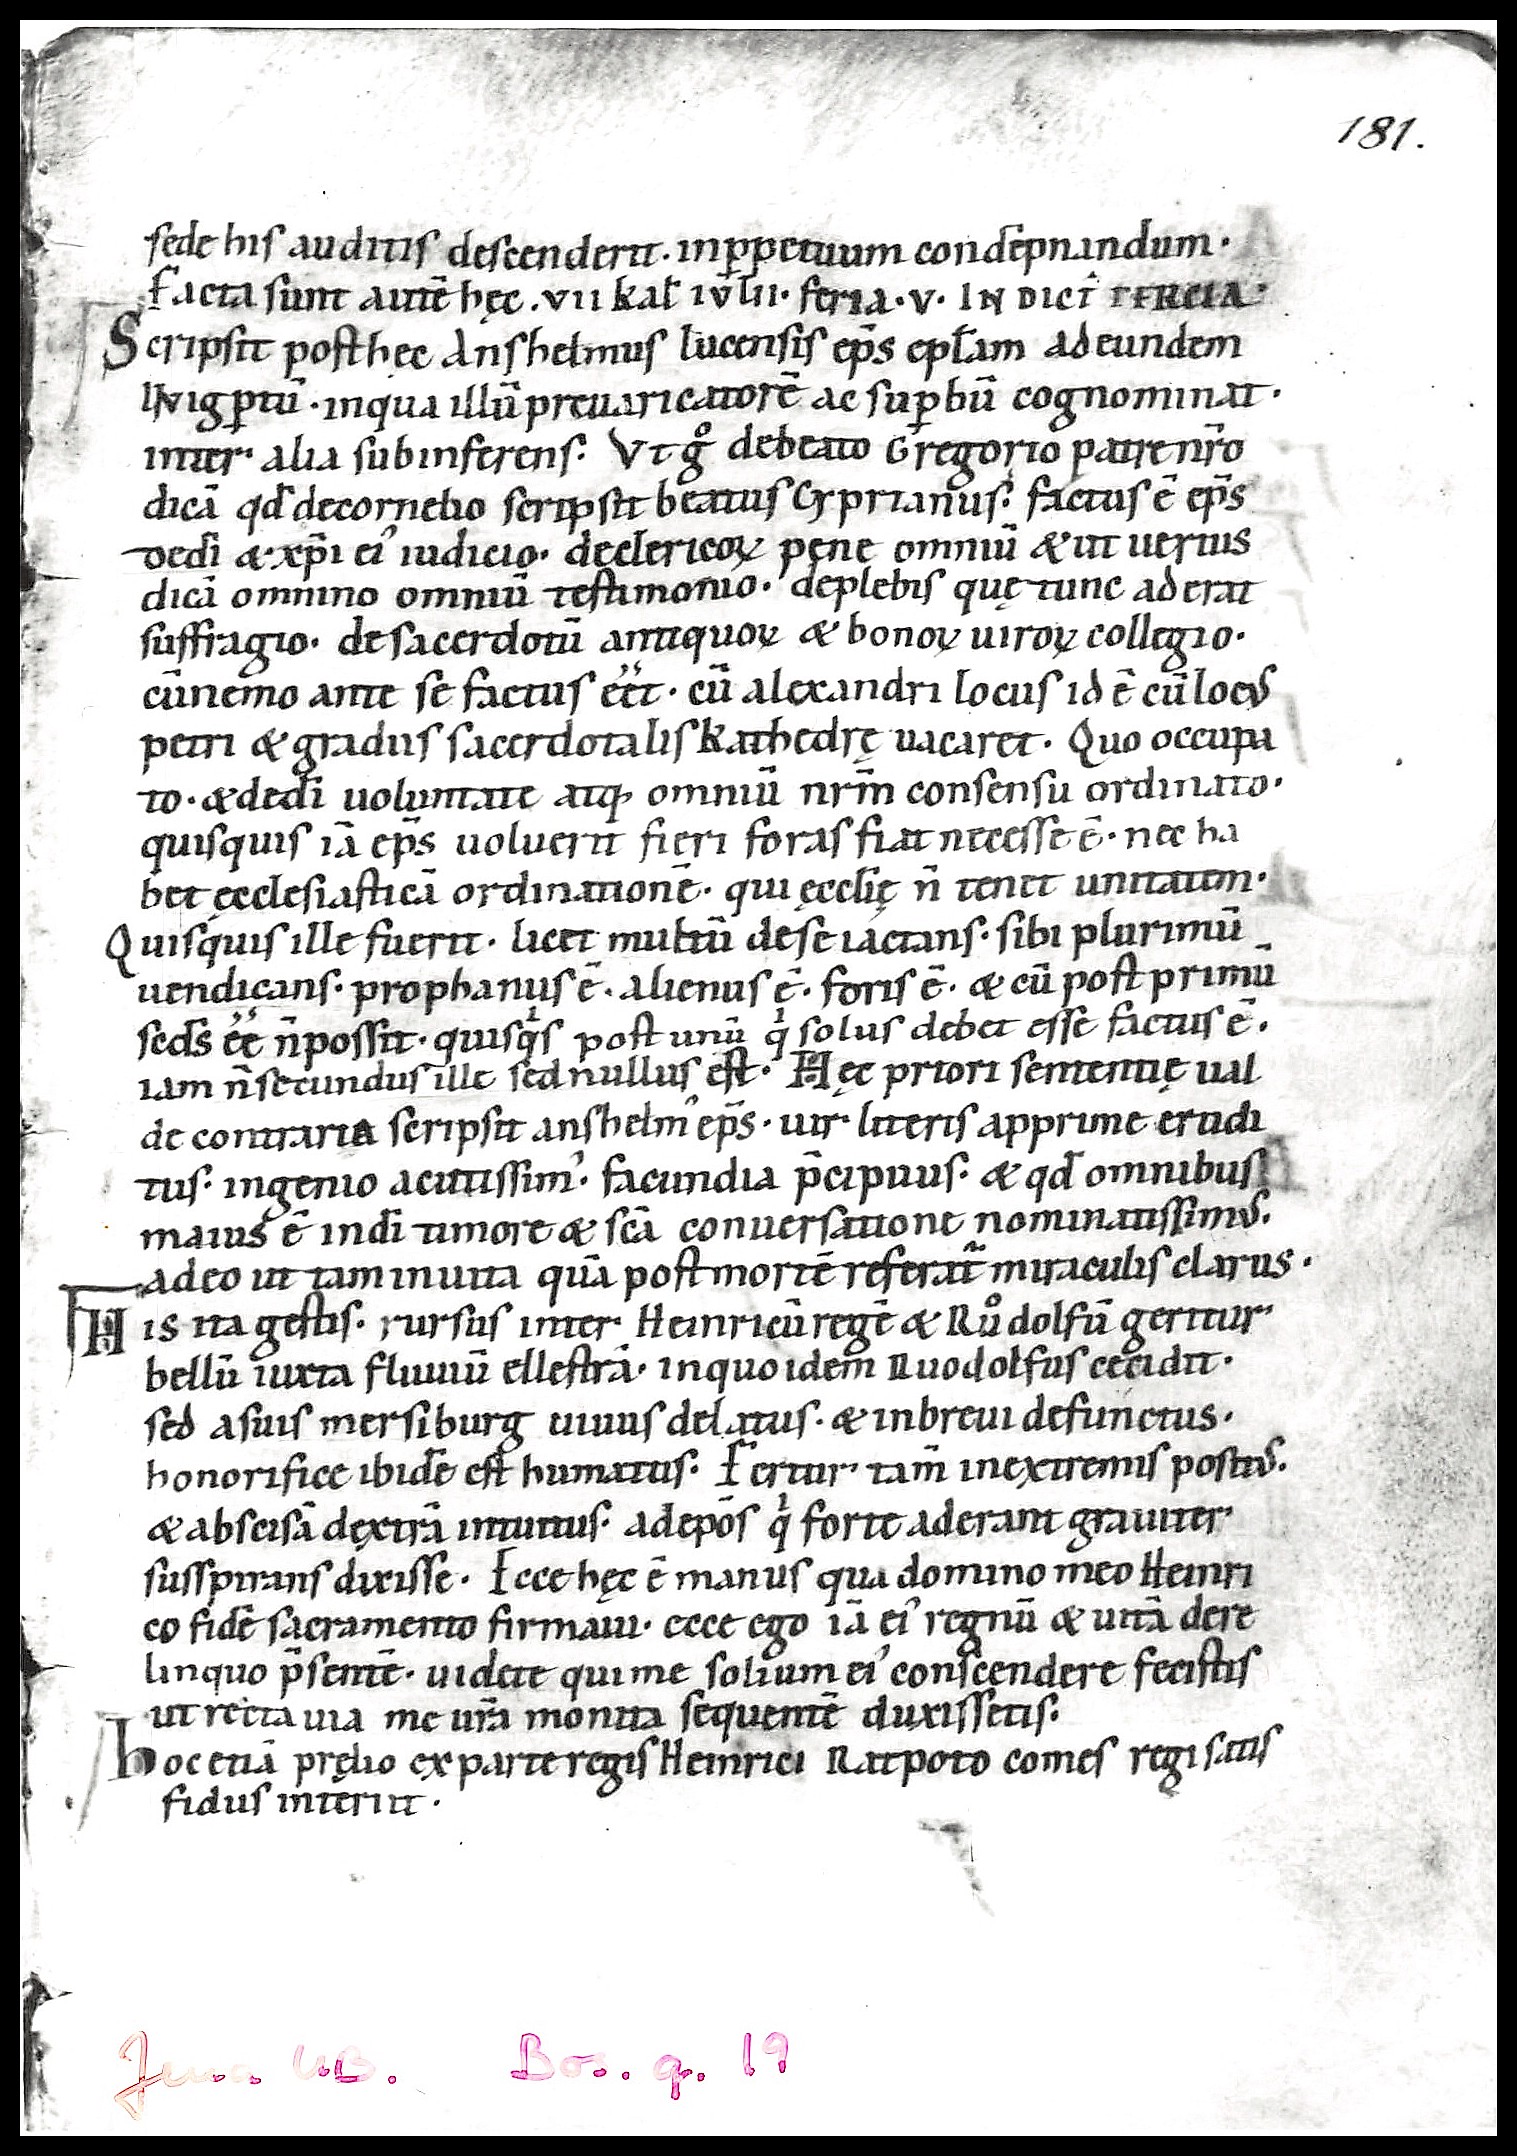 181.
sede his auditis descenderit. inp̱petuum condēpnandum.
Facta sunt autē hęc. vii kaƚ ivlii. feria. v. INDICT̄ TERCIA.
Scripsit posthec Anshelmus lucensis ep̄s epƚam ad eundem
Wigp̱tū. inqua illū preuaricatorē ac sup̱bū cognominat.
inter alia subinferens. Vt gͦ debeato Gregorio patre nr̄o
dicā qđ decornelio scripsit beatus Cyprianus. factus ē ep̄s
dedī & xp̄i ei᾿ iudicio. declericoꝝ pene omniū & ut uerius
dicā omnino omniū testimonio. deplebis quę tunc aderat
suffragio. desacerdotū antiquoꝝ & bonoꝝ uiroꝝ collegio.
cūnemo ante se factus eēt. cū alexandri locus id ē cū locus
petri & gradus sacerdotalis kathedrę uacaret. Quo occupa
to. & dedī uoluntate atq; omniū nrm̄ consensu ordinato.
quisquis iā ep̄s uoluerit fieri foras fiat necesse ē. nec ha
bet ęcclesiasticā ordinationē. qui ęcclię n̄ tenet unitatem.
Quisquis ille fuerit. licet multū dese iactans. sibi plurimū
uendicans. prophanus ē. alienus ē. foris ē. & cū post primū
secds̄ eē n̄possit. quisqͥs post unū qͥ solus debet esse factus ē.
iam n̄secundus ille sed nullus est. Hęc priori sententię ual
de contraria scripsit anshelm᾿ ep̄s. uir literis apprime erudi
tus. ingenio acutissim᾿. facundia p̄cipuus. & qđ omnibus
maius ē indī timore & scā conuersatione nominatissimus.
adeo ut tam inuita quā postmortē referat᷑ miraculis clarus.
His ita gestis. rursus inter Heinricū regē & Ruͦdolfū geritur
bellū iuxta fluuiū ellestrā. inquo idem Ruodolfus cecidit.
sed asuis mersiburg uiuus delatus. & inbreui defunctus.
honorifice ibidē est humatus. Fertur tam̄ inextremis positus.
& abscisā dęxtrā intuitus. adepōs qͥ forte aderant grauiter
susspirans dixisse. Ecce hęc ē manus qua domino meo Heinri
co fidē sacramento firmaui. ecce ego iā ei᾿ regnū & uitā dere
linquo p̄sentē. uidete qui me solium ei᾿ conscendere fecistis
ut recta uia me ur̄a monita sequentē duxissetis.
Hoc etiā pręlio ex parte regis Heinrici Ratpoto comes regi satis
fidus interiit.
Jena U.B. Bos. q. 19